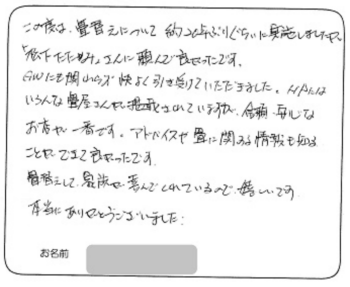 この度は、畳替えについて 約10年ぶりぐらいに実施しましたが
松下たたみさんに頼んで良かったです。
GWにも関わらず快よく引き受けていただきました。HPには
いろんな畳屋さんが掲載されていますが、信頼・安心な
お店が一番です。アドバイスや畳に関する情報も知る
ことができて良かったです。
畳替えして、家族が喜んでくれているので、嬉しいです。
本当にありがとうございました。
お名前